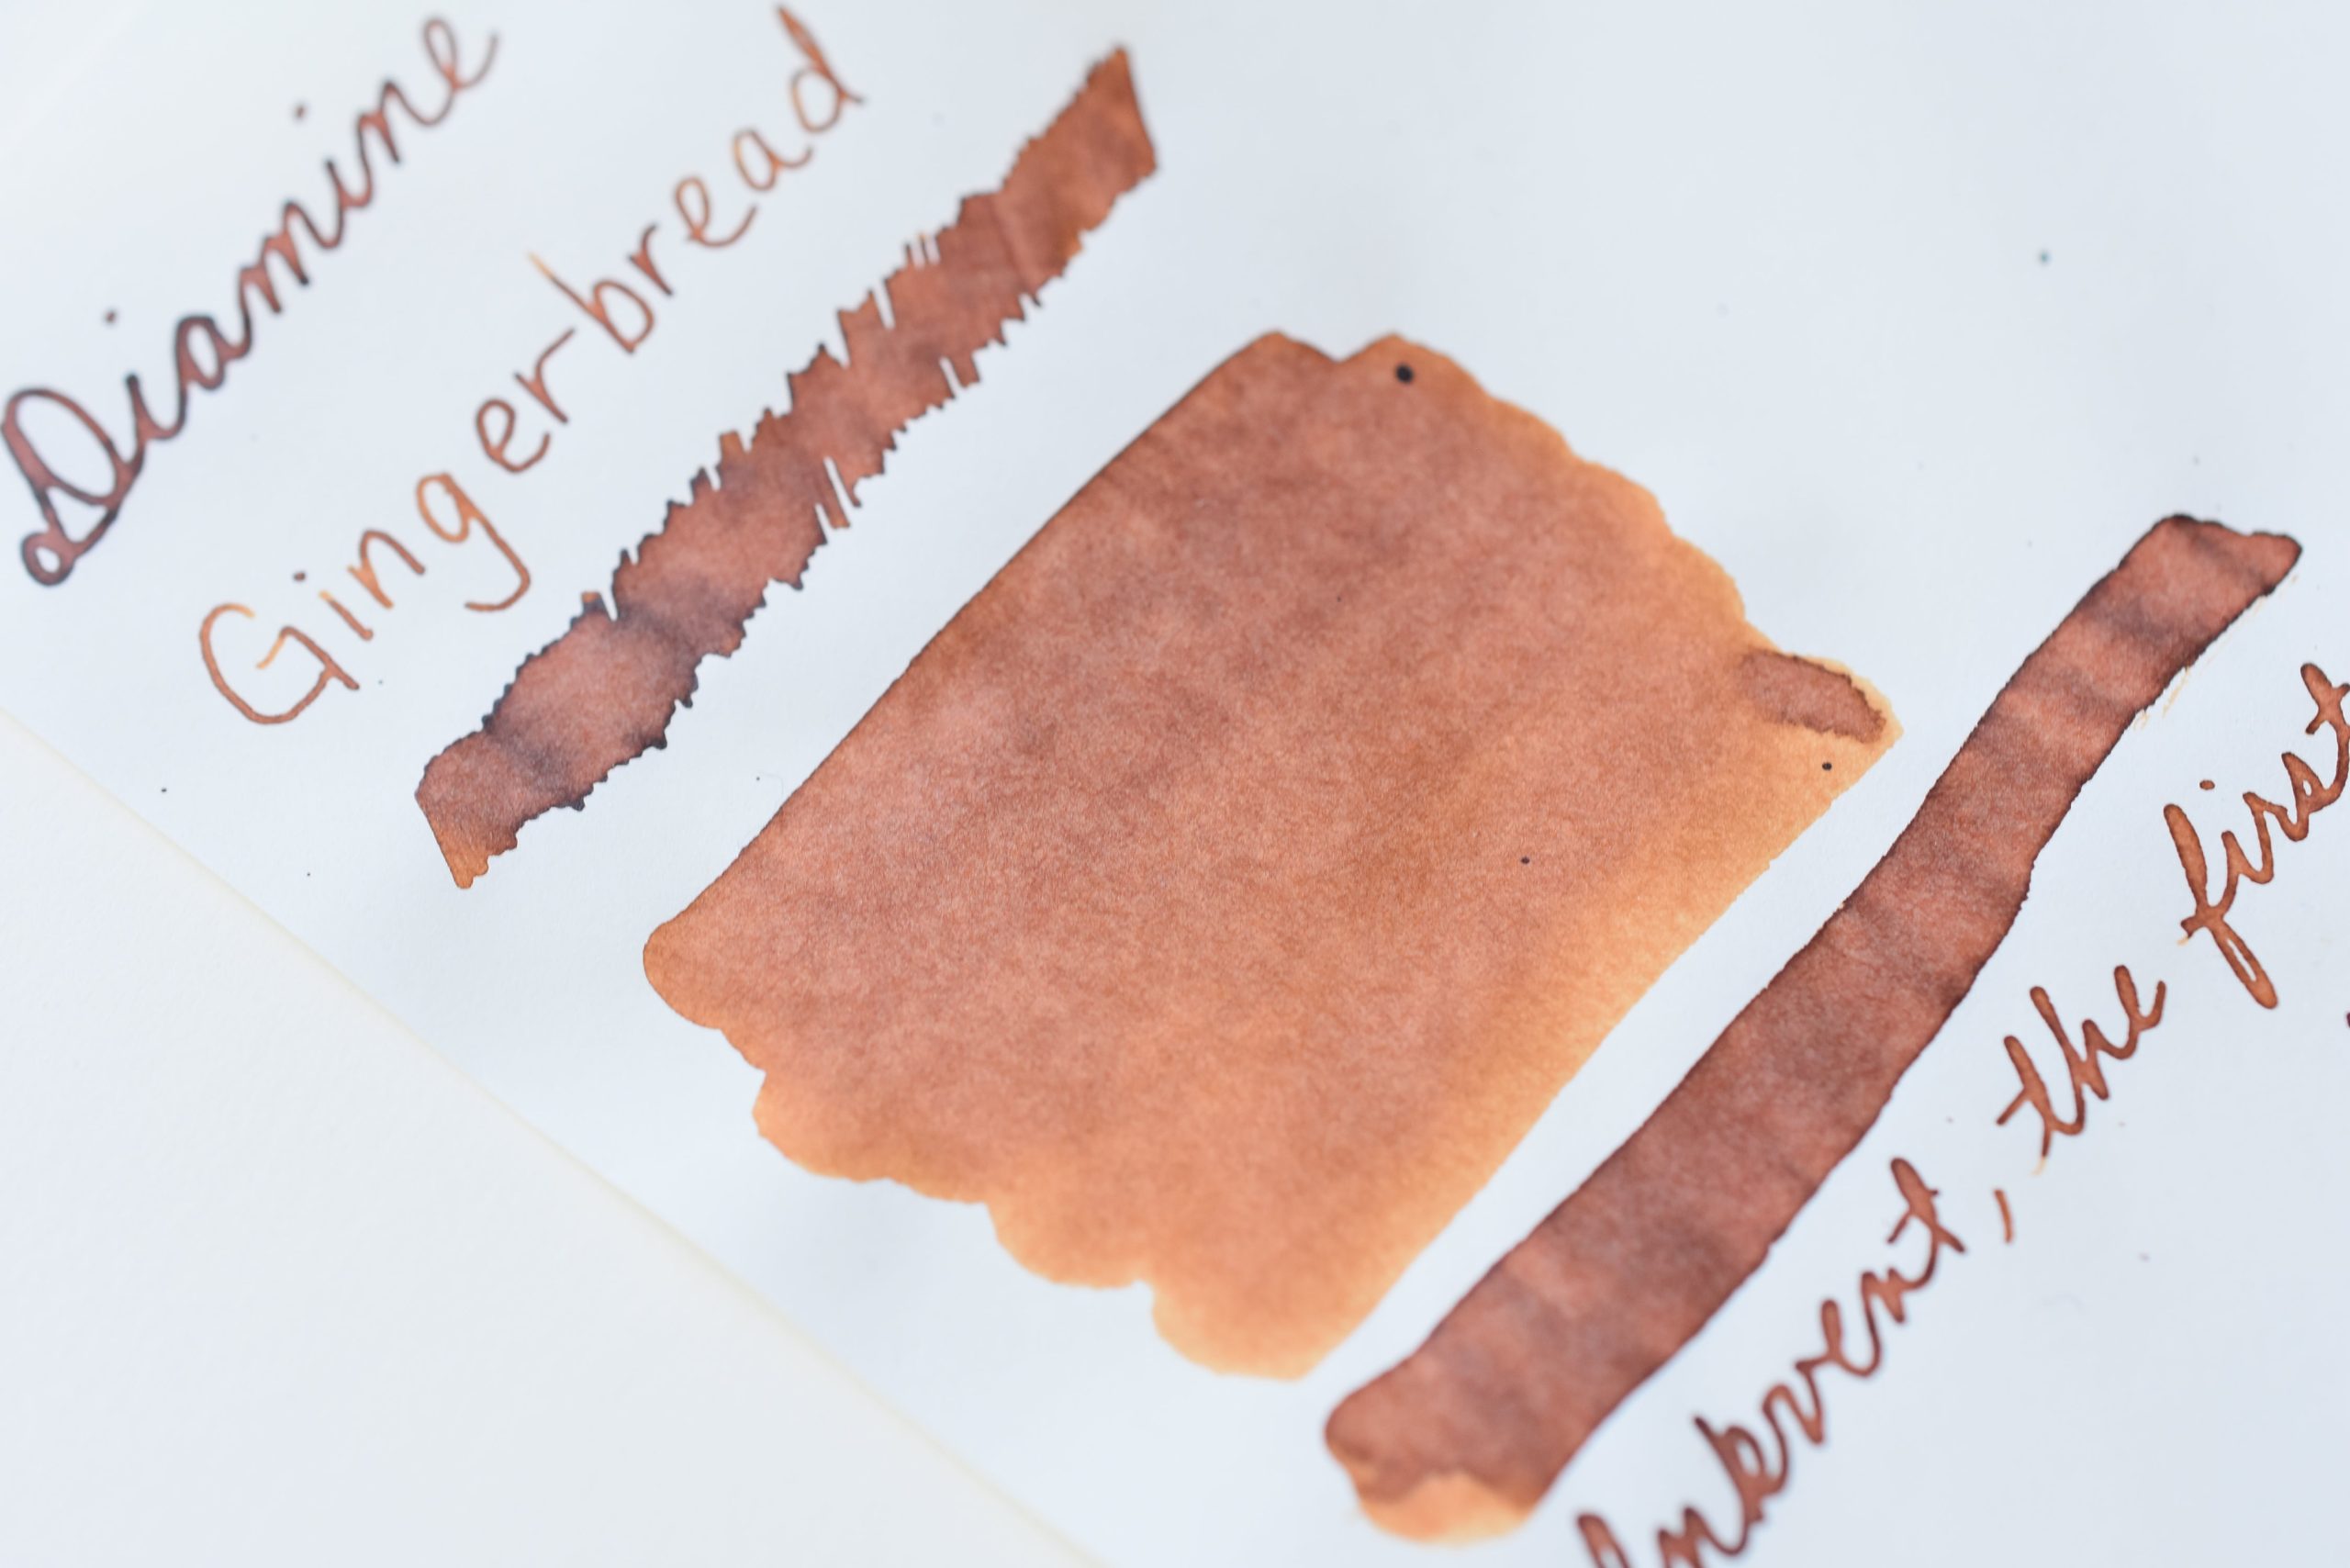 Diamine
Gingerbread
Inkvent, the first